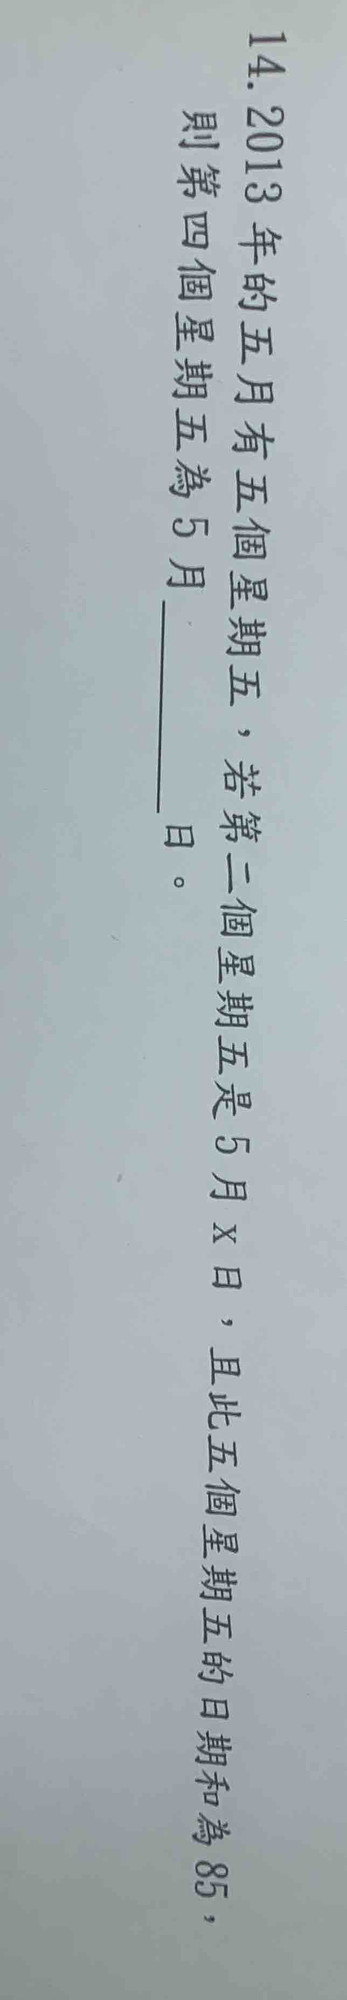 14. 2013 年的五月有五個星期五，若第二個星期五是 5 月 x 日，且此五個星期五的日期和為 85，
則第四個星期五為 5 月________日。